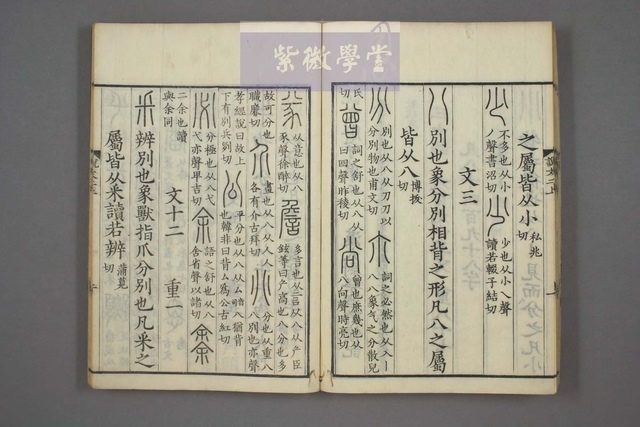 紫微學堂
之屬皆从小私兆切
少不多也从小丿聲書沼切 少也从小乀聲讀若輟子結切
文三
八別也象分別相背之形凡八之屬
皆从八博拔切
分別也从八从刀刀以分別物也甫文切 尒詞之必然也从入丨八八象气之分散兒
氏切 曾詞之舒也从八从曰囪聲昨稜切 尚曾也庶幾也从八向聲時亮切
㒸从意也从八豕聲徐醉切 詹多言也从言从八从产臣鉉等曰产高也八分也多
故可分也職廉切 介畫也从八从人人各有介 古拜切 分也从重八八別也亦聲
孝經說曰故上下有別兵列切 公平分也从八从厶音司八猶背也韓非曰背厶爲公古紅切
必分極也从八弋弋亦聲卑吉切 余語之舒也从八舍省聲以諸切
二余也讀與余同
文十二 重一
釆辨別也象獸指爪分別也凡釆之
屬皆从釆讀若辨蒲莧切